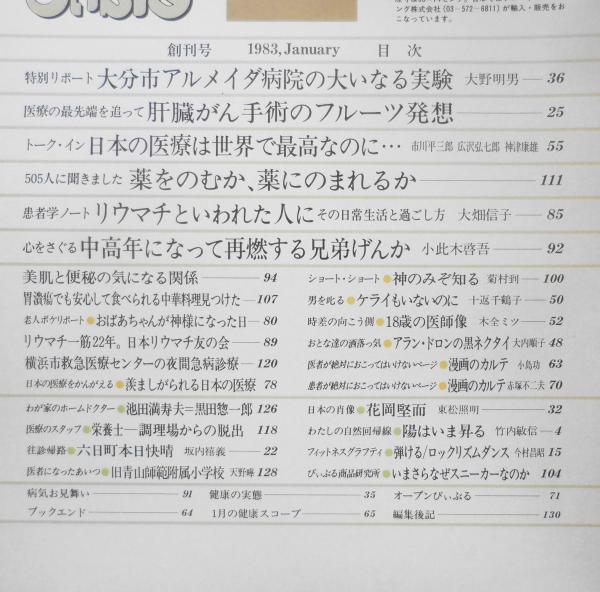 ング株式会社(03-572-6811)が輸入・販売をお
こなっています。
創刊号 1983, January 目次
特別リポート 大分市アルメイダ病院の大いなる実験 大野明男 36
医療の最先端を追って 肝臓がん手術のフルーツ発想 25
トーク・イン 日本の医療は世界で最高なのに… 市川平三郎 広沢弘七郎 神津康雄 55
505人に聞きました 薬をのむか、薬にのまれるか 111
患者学ノート リウマチといわれた人に その日常生活と過ごし方 大畑信子 85
心をさぐる 中高年になって再燃する兄弟げんか 小此木啓吾 92
美肌と便秘の気になる関係 94
胃潰瘍でも安心して食べられる中華料理見つけた 107
老人ボケリポート●おばあちゃんが神様になった日 80
リウマチ一筋22年。日本リウマチ友の会 89
横浜市救急医療センターの夜間急病診療 120
日本の医療をかんがえる●羨ましがられる日本の医療 78
ショート・ショート●神のみぞ知る 菊村到 100
男を叱る●ケライもいないのに 十返千鶴子 50
時差の向こう側●18歳の医師像 木全ミツ 52
おとな達の洒落っ気●アラン・ドロンの黒ネクタイ 大内順子 48
医者が絶対におこってはいけないページ●漫画のカルテ 小島功 63
患者が絶対におこってはいけないページ●漫画のカルテ 赤塚不二夫 70
わが家のホームドクター●池田満寿夫=黒田惣一郎 126
医療のスタッフ●栄養士―調理場からの脱出 118
往診帰路●六日町本日快晴 坂内禧義 22
医者になったあいつ●旧青山師範附属小学校 天野 128
日本の肖像●花岡堅而 東松照明 32
わたしの自然回帰線●陽はいま昇る 竹内敏信 4
フィットネスグラフティ●弾ける/ロックリズムダンス 今村昌昭 15
ぴぃぷる商品研究所●いまさらなぜスニーカーなのか 104
病気お見舞い 91
健康の実態 35
オープンぴぃぷる 71
ブックエンド 64
1月の健康スコープ 65
編集後記 130